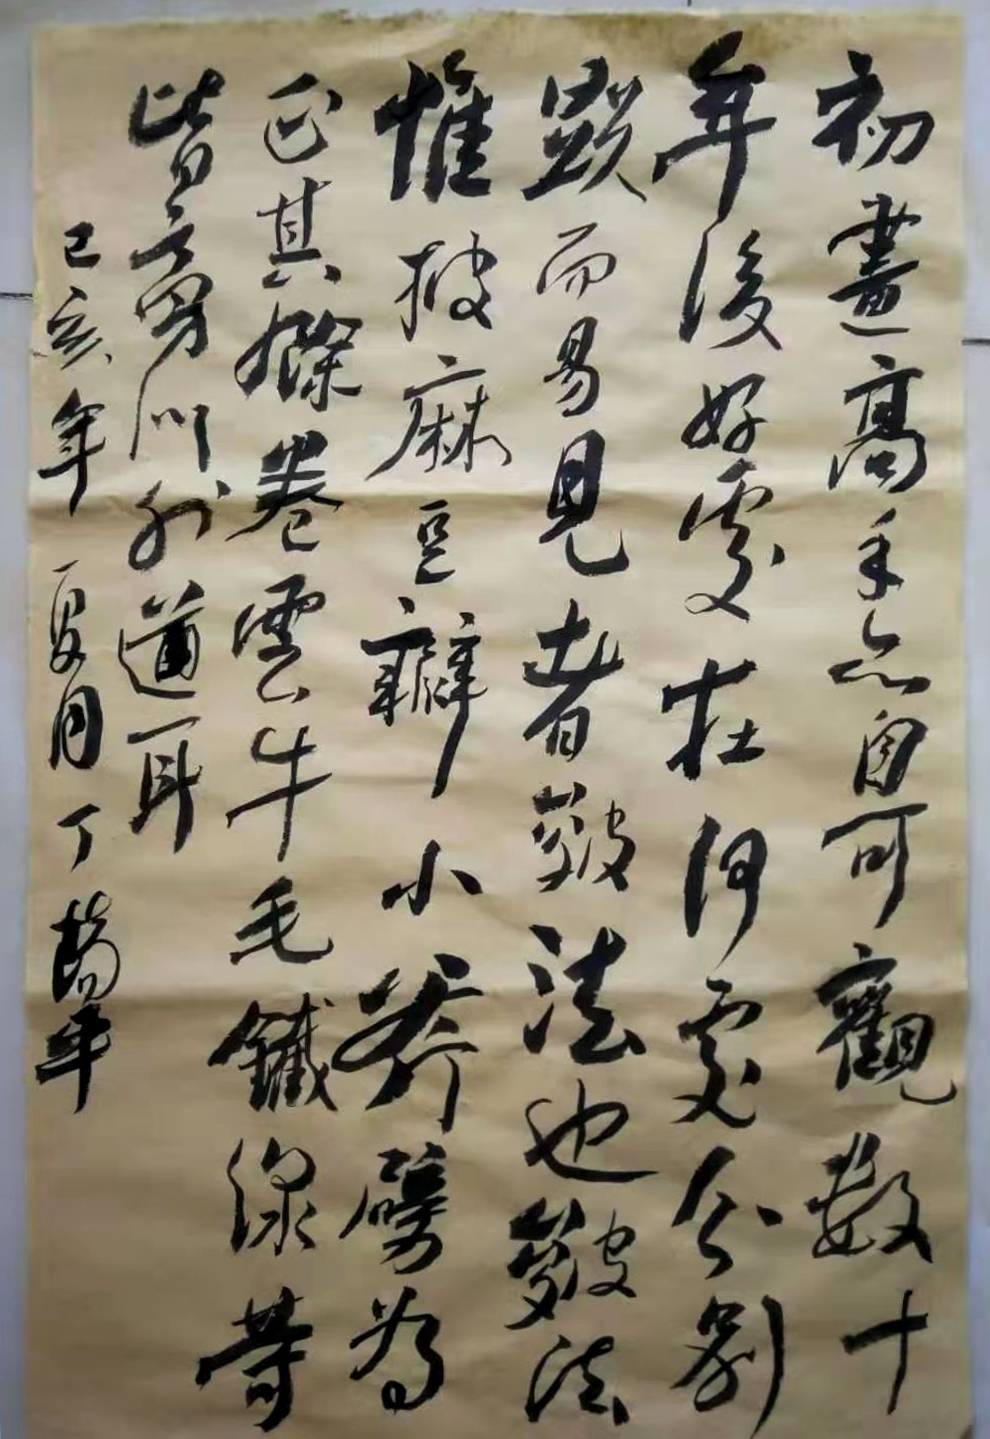 初畫高手亦自可觀數十
年後好處在何處分別
顯而易見者皴法也皴法
惟披麻豆瓣小斧劈為
正其餘卷雲牛毛鐵線等
皆旁門外道耳
己亥年夏月丁楊年